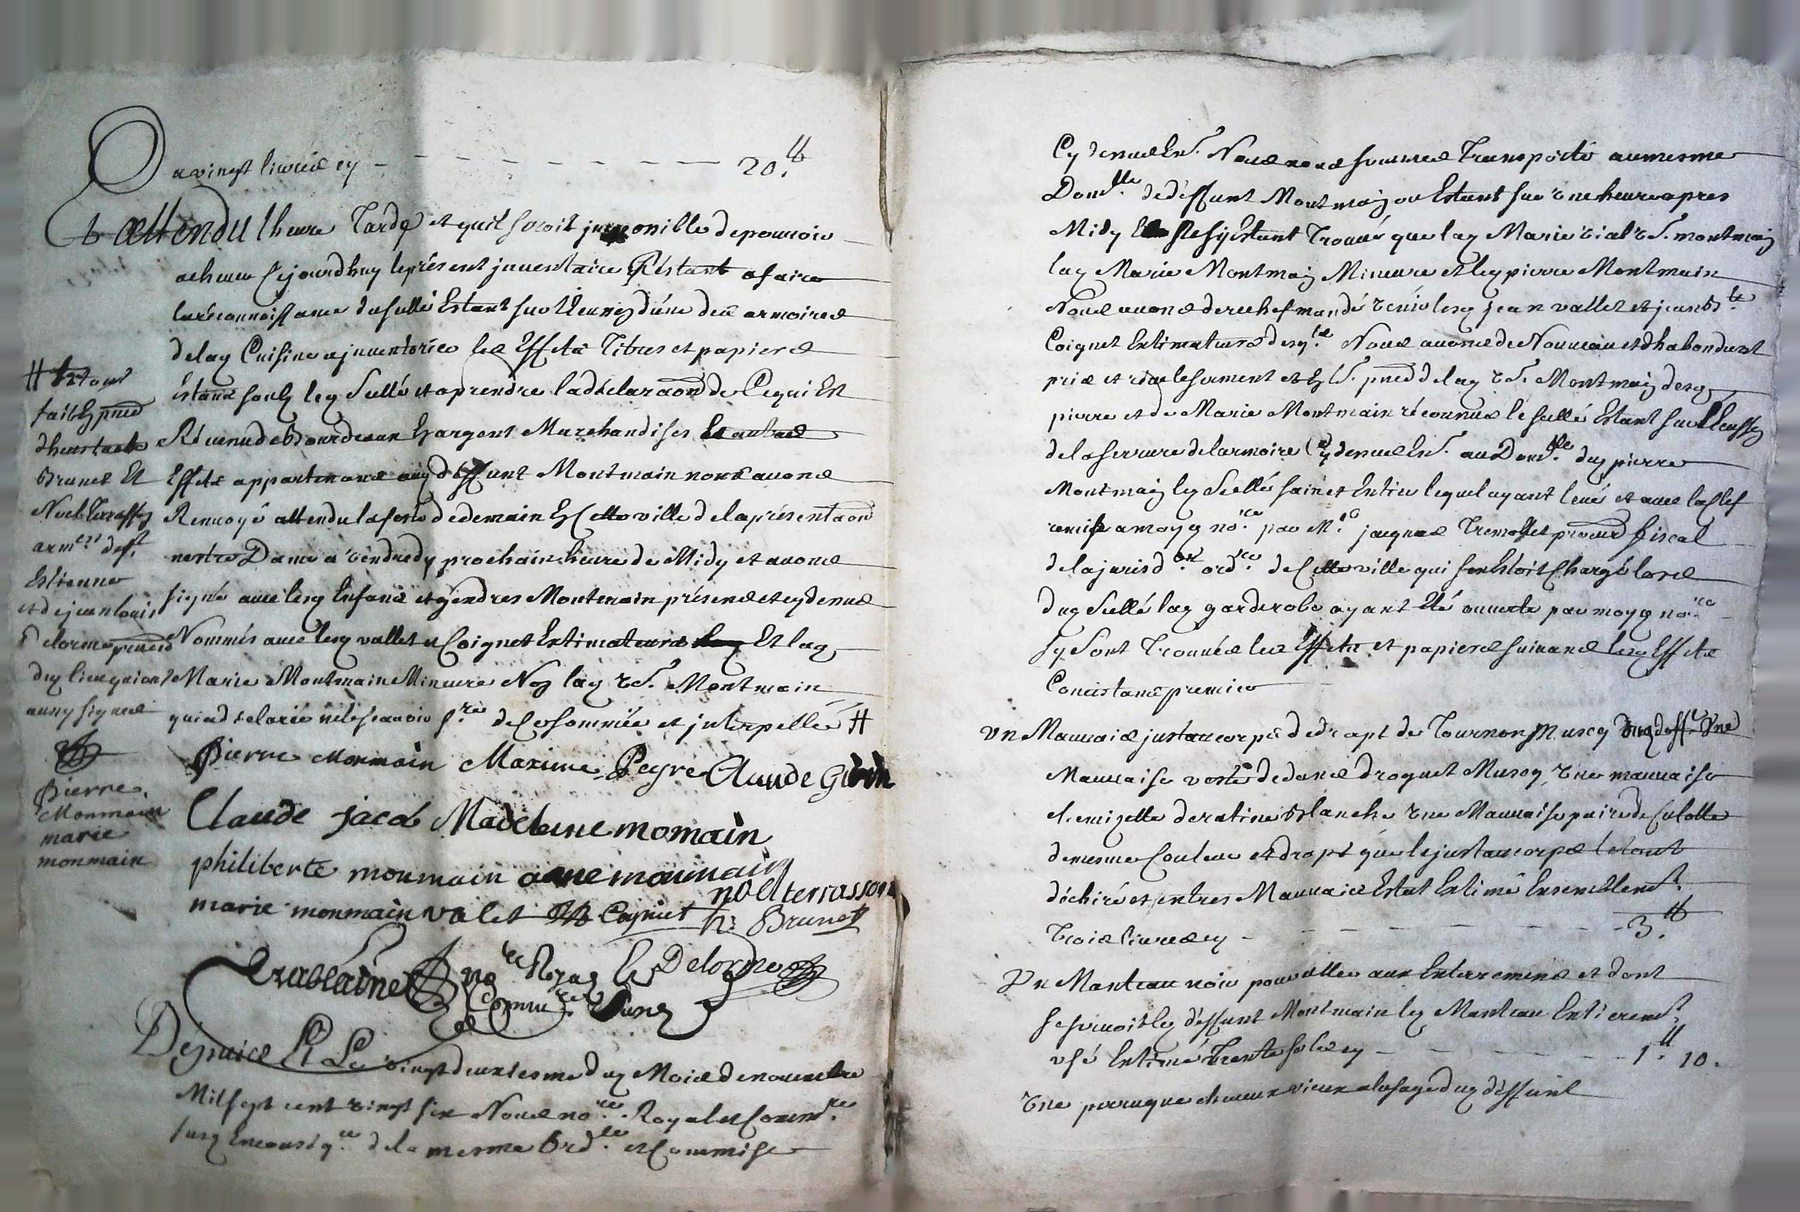 a vingt livres cy - - - - - - - 20.ᵗᵗ
Et attendu lheure Tarde et quil seroit impossible depouvoir
achever cejourdhuy leprésent jnventaire Réstant afaire
laréconnoissance duscellé Estant sur lune des armoires
delad Cuisine ajnventorier les Effets Titres et papiers
éstans soubs led Scellé et aprendre ladeclaraon de Cequi Est
Révenu deBourdeaux En argent Marchandises Et autres
Effets appartenans aud deffunt Montmain nous avons
Renvoyé attendu lafeste dedemain En Cette ville delaprésentaon
nostre Dame a vendredy prochain heure de Midy et avons
signé avec lesd Enfans et gendres Montmain présens et cydevant
Nommés avec lesd vallet et Coignet Estimateurs Et lad
Marie Montmain Mineure Non lad ve. Montmain
quiadeclaré nelesçavoir f.re deCe Sommée et jnterpellée #
# le tout
fait En pnce
dheustache
Brunet Et
Noel Terrasson
Estienne
et dejean louis
Delorme
aussy signés
Pierre
Monmain
marie
monmain
pierre monmain Maxime Peyre Claude Girin
Claude jacob Madeleine momain
philiberte monmain anne monmain
noel terrasson
marie monmain valet Cogniet h: Brunet
Delorme
Depuis Et Le vingt deuxiesme dud Mois denovembre
Mil sept cent vingt six Nous no.re Royal et Comm.re
susd Enconseq.ce dela mesme Ord.ce et Commise
Cydevant En.ᵉ Nous nous sommes Transporté aumesme
Dom.lle dedeffunt Montmain ou Estant sur une heure apres
Midy Et sesy Estant Trouvé que lad Marie vial ve. montmain
lad Marie Montmain Mineure et led pierre Montmain
Nous avons derechef mandé venir lesd jean vallet et jean B.te
Coignet Estimateurs desq.ls Nous avons deNouveau et dhabondant
pris et reçu leserment et En pnce delad ve. Montmain desd
pierre et de Marie Montmain réconnus le scellé Estant sur
delaserrure delarmoire Cydevant En.ᵉ au Dom.lle dud pierre
Montmain led Scellé sain et Entier lequel ayant levé et avec laclef
remise amoyd no.re par M.re jacques Tremollet procur fiscal
delajurisd.on ord.re de Cetteville qui sen Estoit Chargé lors
dud Scellé lad garderobe ayant Eté ouverte par moyd no.re
sy sont Trouvés les Effets et papiers suivans lesd Effets
Concistans premier
Un Mauvais justaucorps dedrapt de Tournon Musq une
Mauvaise veste dedans droguet Musq une mauvaise
chemizette deratine Blanche une Mauvaise paire de Culotte
demesme Couleur et draps que le justaucorps letout
déchiré et entres Mauvais Estat Estimé Ensemblem.t
Trois livres cy - - - - - - - 3.ᵗᵗ
Un Manteau noir pour aller aux Enterremens et dont
seservoit led deffunt Montmain led Manteau Entierem.t
usé Estimé Trente sols cy - - - - - 1.ᵗᵗ 10.
Une perruque cheveux vieux alusage dud déffunt